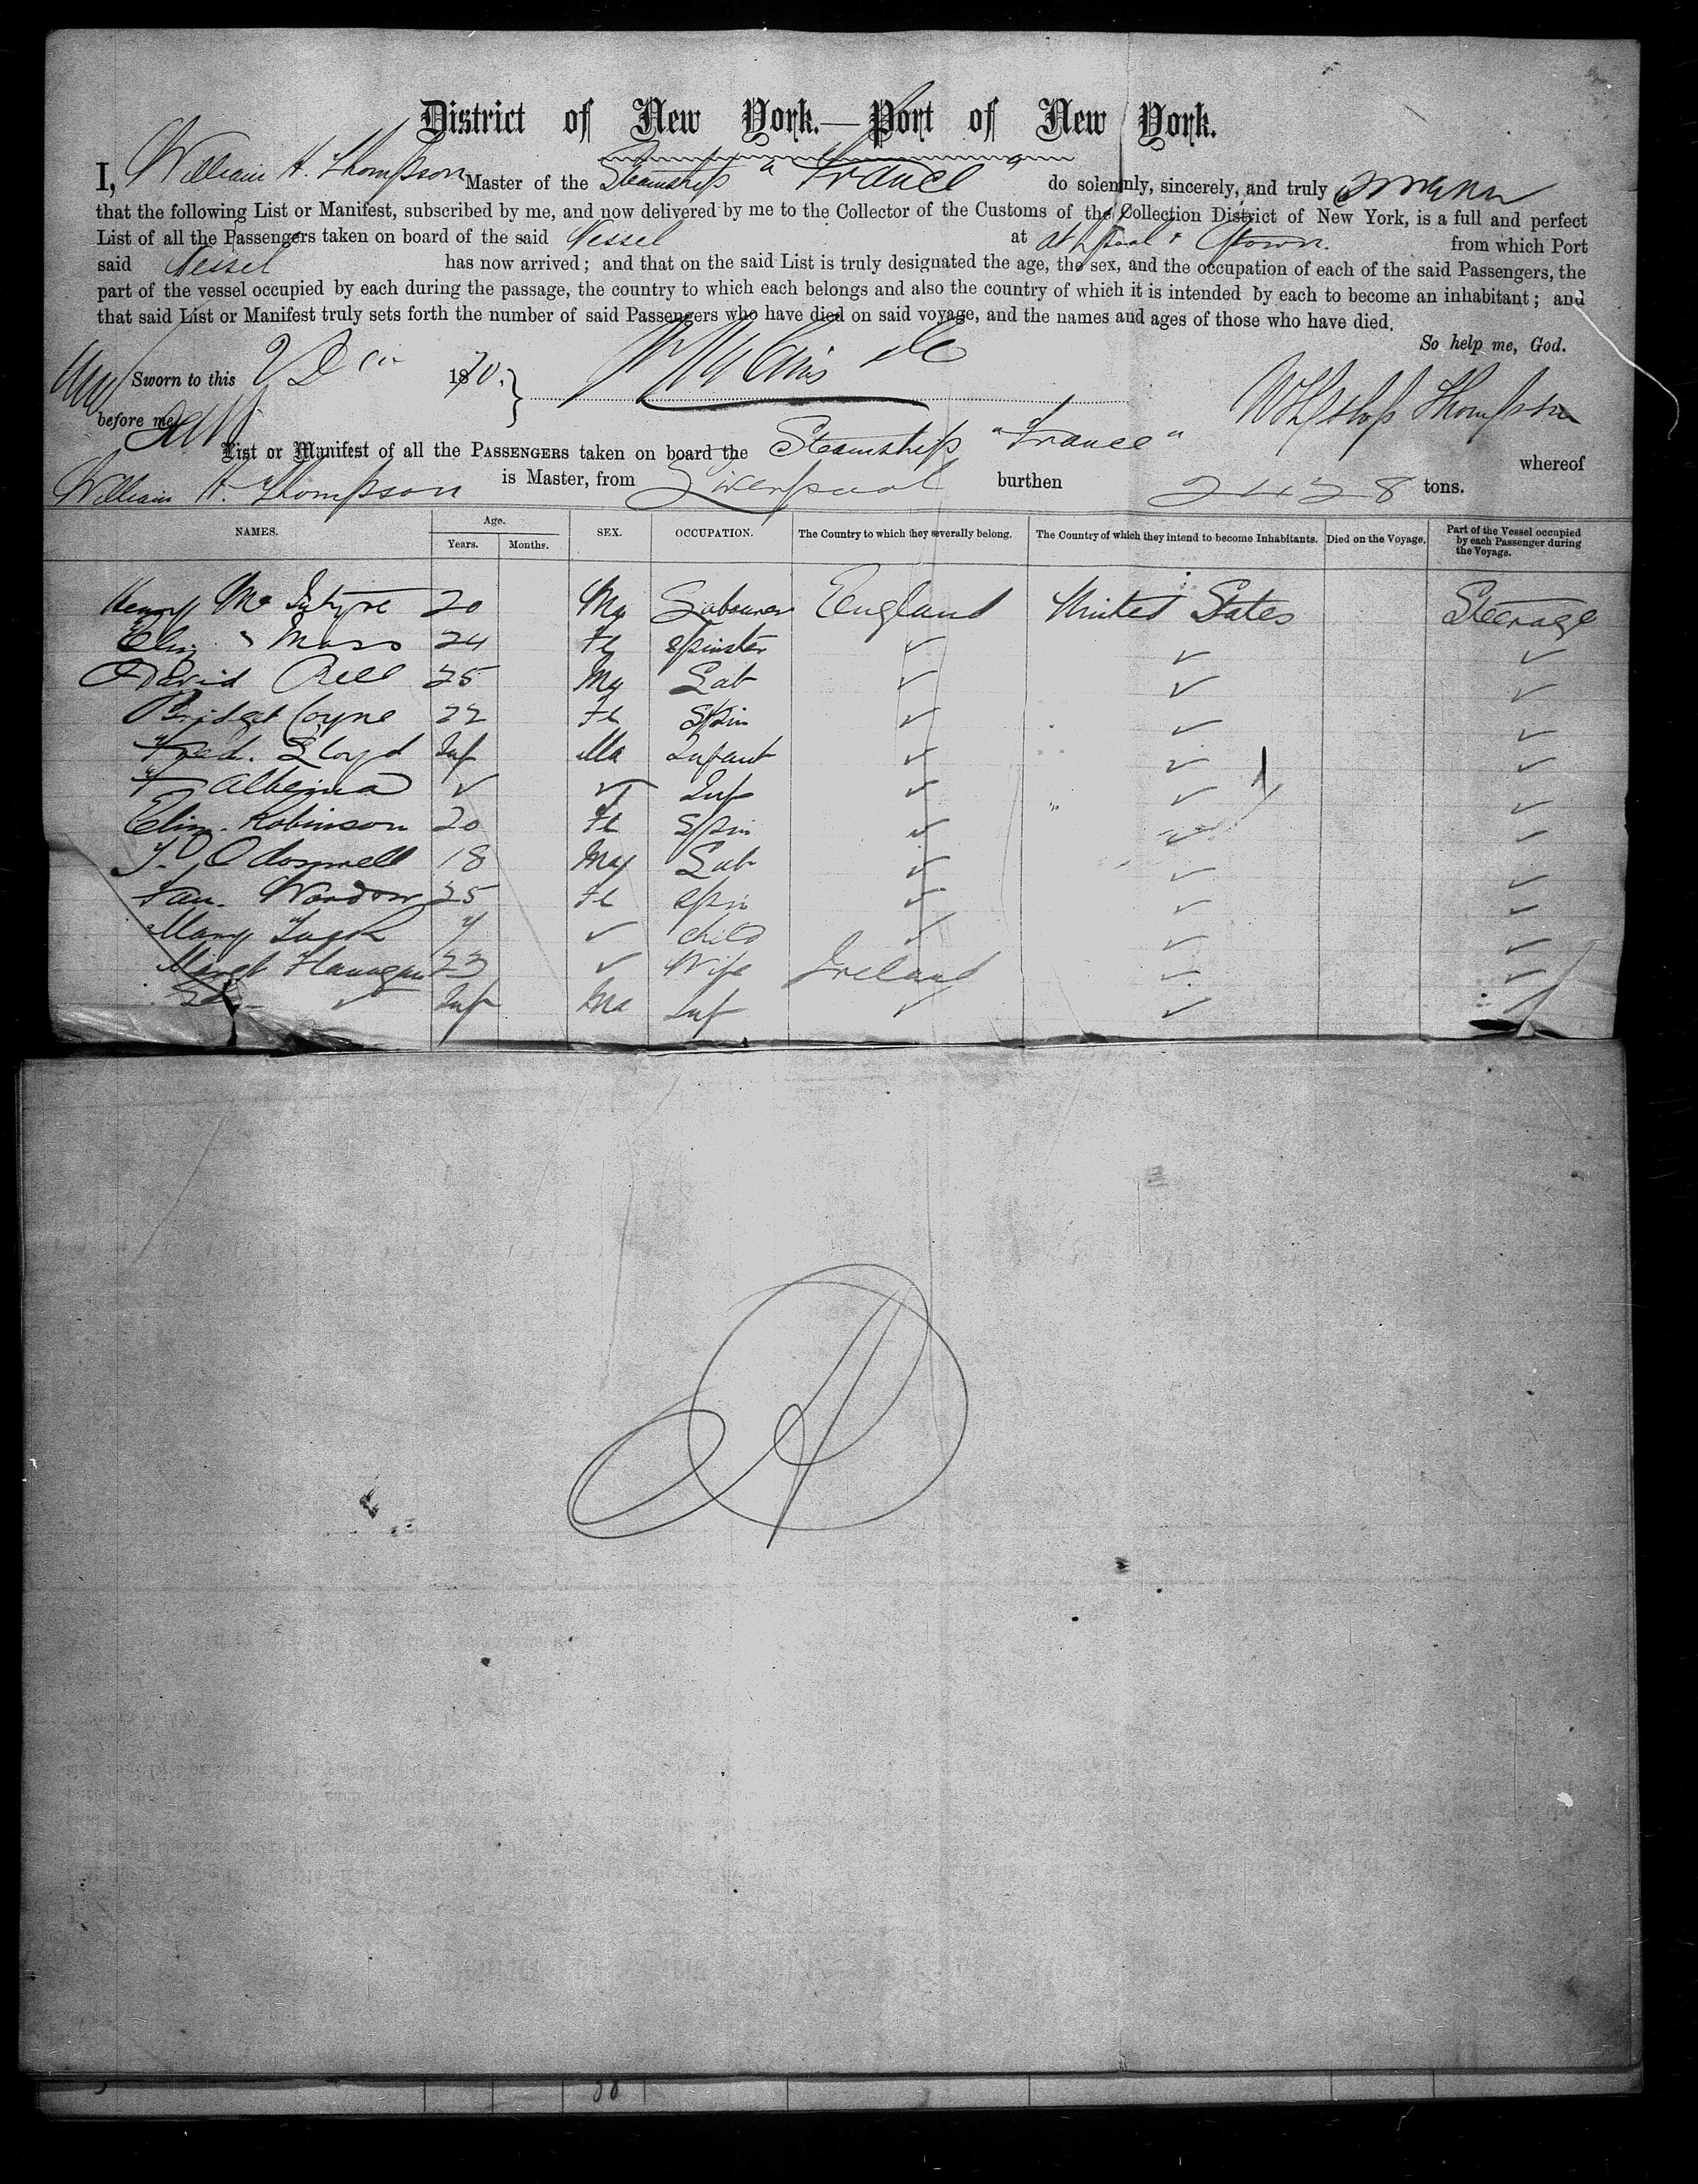 District of New York.—Port of New York.
I, William H. Thompson Master of the Steamship "France" do solemnly, sincerely, and truly
that the following List or Manifest, subscribed by me, and now delivered by me to the Collector of the Customs of the Collection District of New York, is a full and perfect
List of all the Passengers taken on board of the said Vessel at at L'pool & Qtown. from which Port
said Vessel has now arrived; and that on the said List is truly designated the age, the sex, and the occupation of each of the said Passengers, the
part of the vessel occupied by each during the passage, the country to which each belongs and also the country of which it is intended by each to become an inhabitant; and
that said List or Manifest truly sets forth the number of said Passengers who have died on said voyage, and the names and ages of those who have died.
So help me, God.
Sworn to this 1870.
before me Thompson
List or Manifest of all the PASSENGERS taken on board the Steamship "France" whereof
William H. Thompson is Master, from Liverpool burthen 2428 tons.
NAMES. Age. Years. Months. SEX. OCCUPATION. The Country to which they severally belong. The Country of which they intend to become Inhabitants. Died on the Voyage. Part of the Vessel occupied by each Passenger during the Voyage.
Henry Mc Intyre 20 Ma Labourer England United States Steerage
Eliz " 24 Fe Spinster ✓ ✓ ✓
David Bell 25 Ma Lab ✓ ✓ ✓
Bridget Coyne 22 Fe Spin ✓ ✓ ✓
Fred. Lloyd Inf Ma Infant ✓ ✓ ✓
✓ ✓ Inf ✓ ✓ ✓
Eliz. Robinson 20 Fe Spin ✓ ✓ ✓
P. O'Donnell 18 Ma Lab ✓ ✓ ✓
25 Fe Spin ✓ ✓ ✓
Mary 7 ✓ child ✓ ✓ ✓
Margt Flanagan 23 ✓ Wife Ireland ✓ ✓
✓ Inf Ma Inf ✓ ✓ ✓